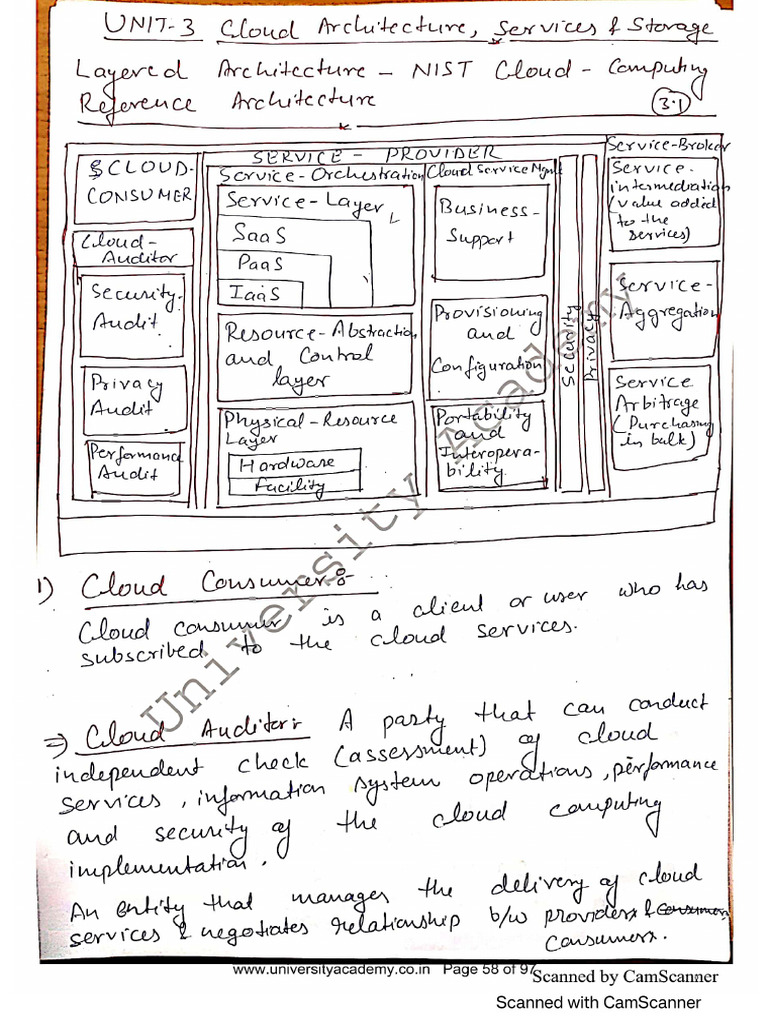 UNIT-3 Cloud Architecture, Services & Storage
Layered Architecture - NIST Cloud - Computing
Reference Architecture
3.1
SERVICE - PROVIDER
Service-Broker
CLOUD-
CONSUMER
Cloud-
Auditor
Security-
Audit
Privacy
Audit
Performance
Audit
Service-Orchestration
Service-Layer
SaaS
PaaS
IaaS
Resource-Abstraction
and Control
layer
Physical-Resource
Layer
Hardware
Facility
Cloud Service Mgmt
Business-
Support
Provisioning
and
Configuration
Portability
and
Interopera-
bility
Security
Privacy
Service-
intermediation
(value added
to the
services)
Service-
Aggregation
Service
Arbitrage
(Purchasing
in bulk)
1) Cloud Consumer:-
Cloud consumer is a client or user who has
subscribed to the cloud services.
⇒ Cloud Auditor:- A party that can conduct
independent check (assessment) of cloud
services, information system operations, performance
and security of the cloud computing
implementation.
An entity that manages the delivery of cloud
services & negotiates relationship b/w providers & consumers
consumers.
University Academy
www.universityacademy.co.in Page 58 of 97
Scanned by CamScanner
Scanned with CamScanner